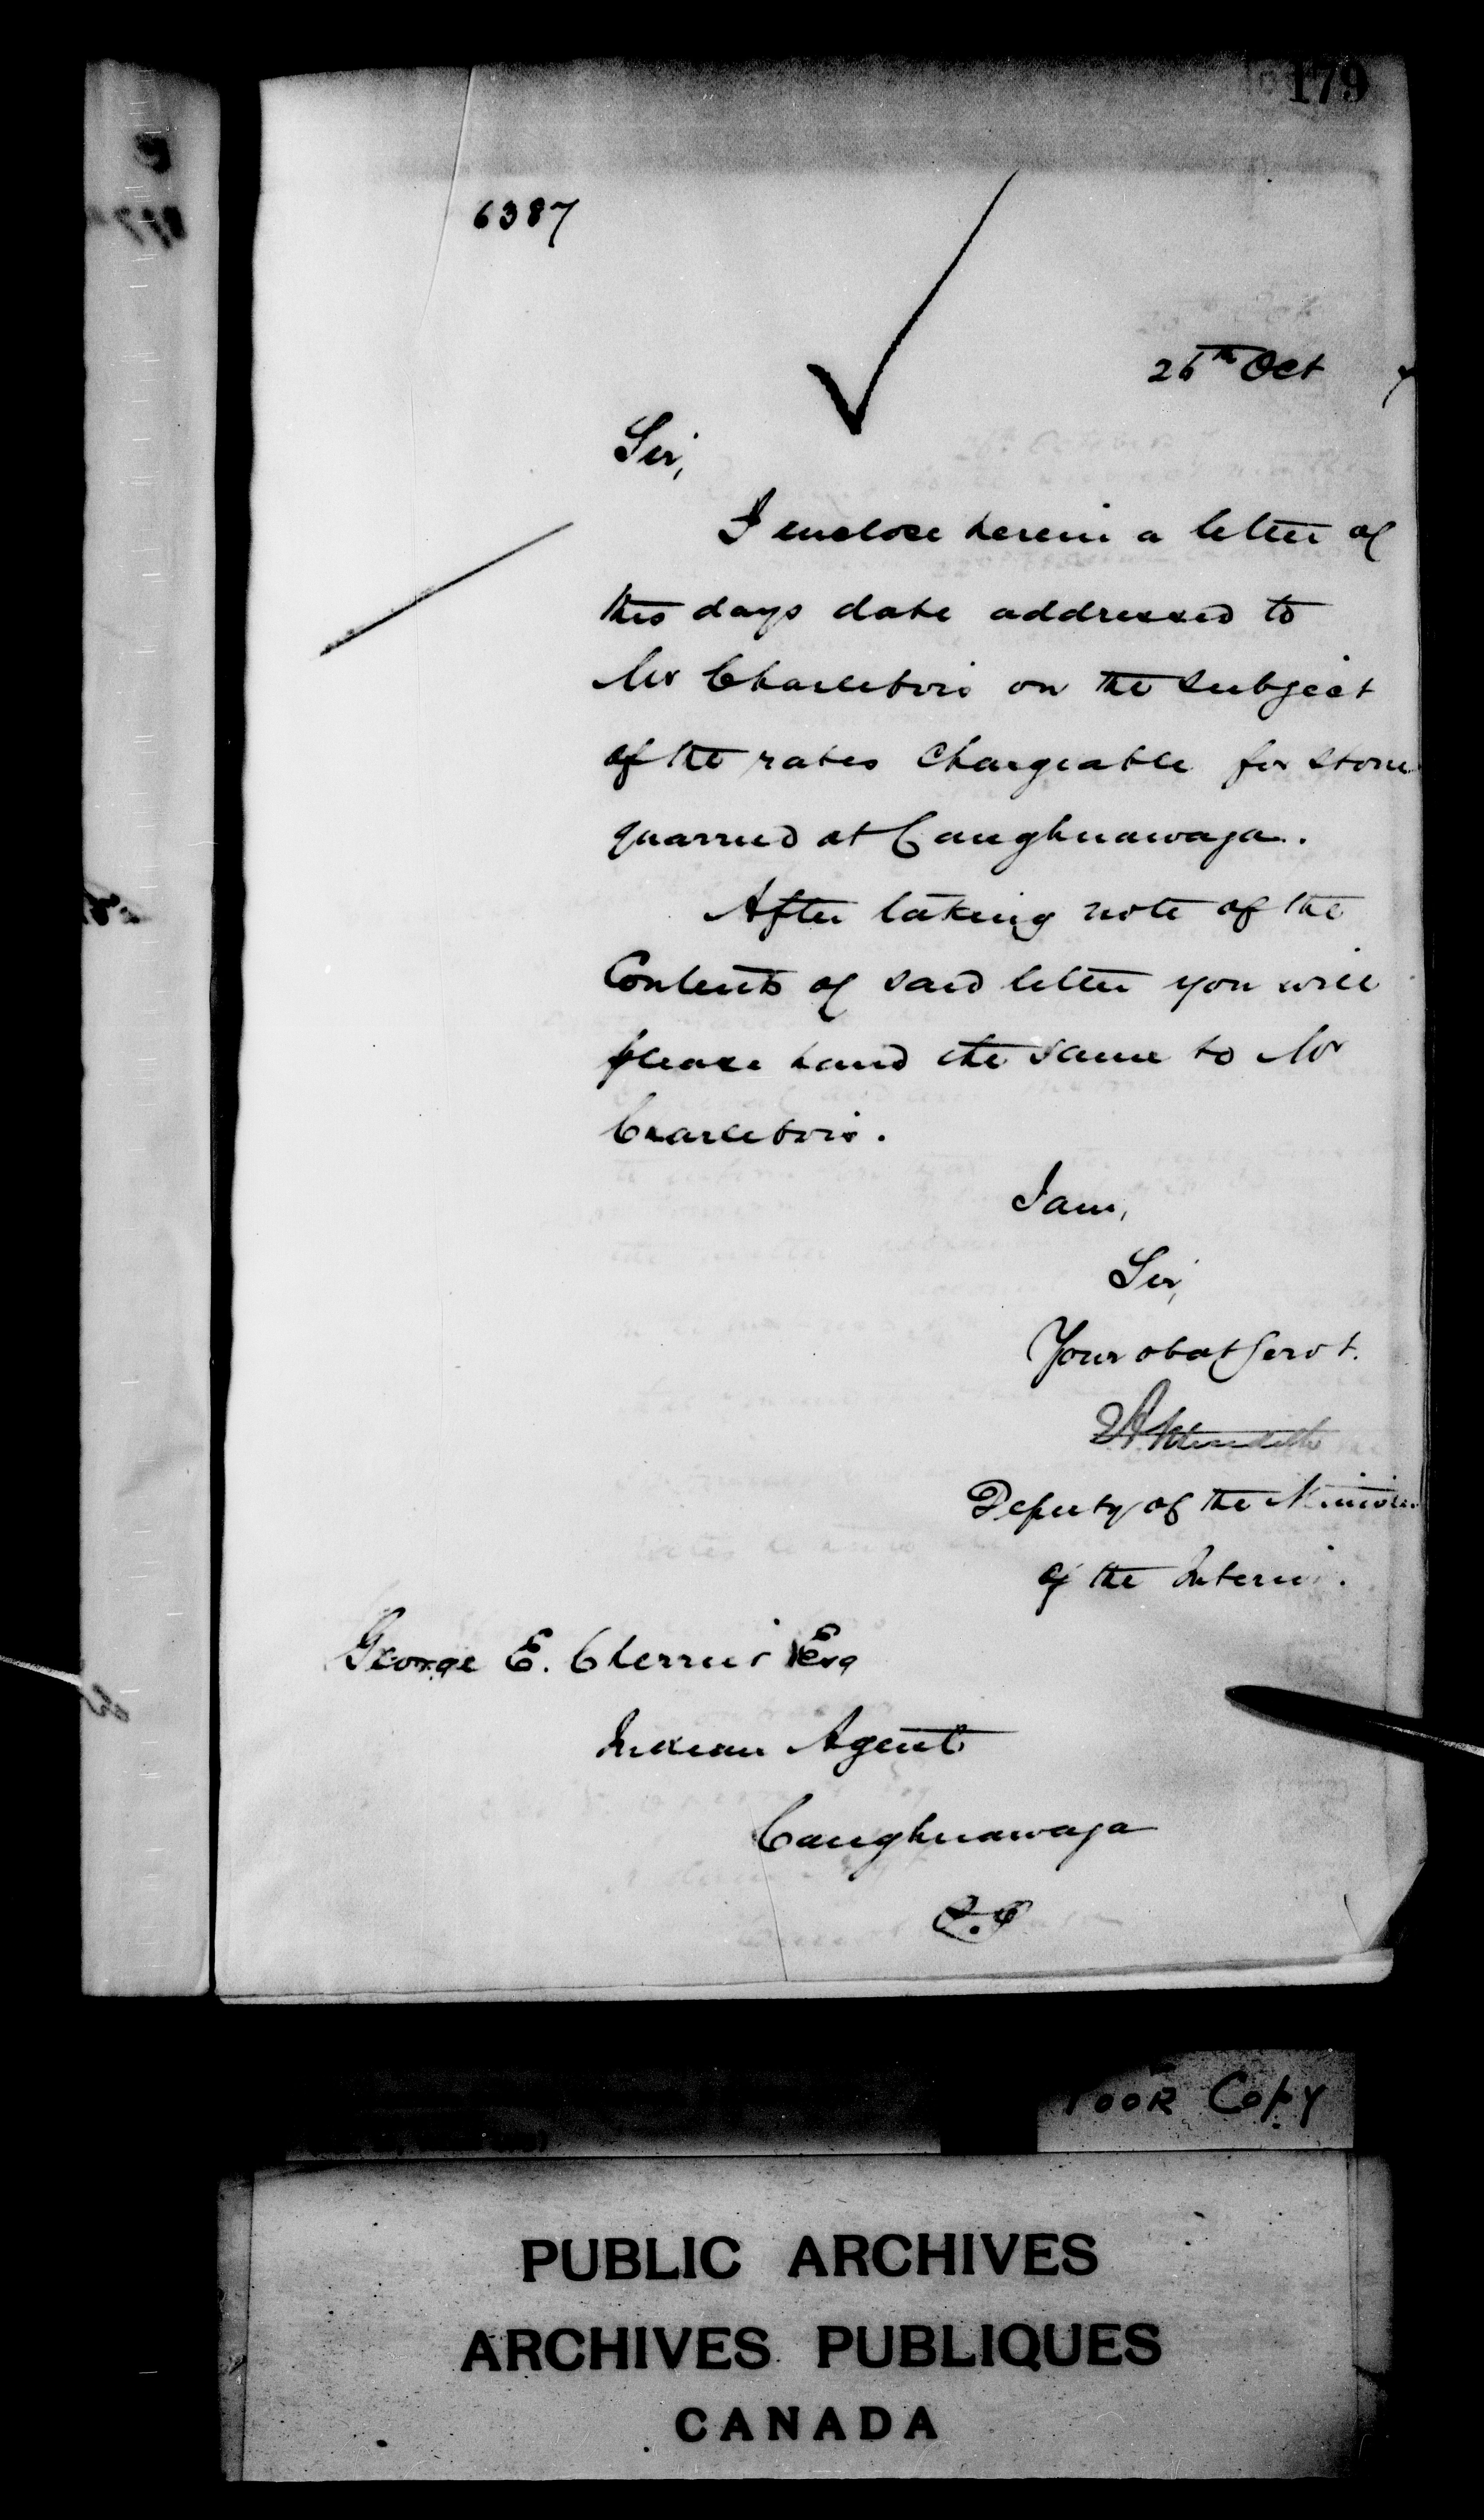 179
6387
26th Oct
Sir,
I enclose herein a letter of
this days date addressed to
Mr Charlebois on the subject
of the rates Chargeable for stone
quarried at Caughnawaga.
After taking note of the
Contents of said letter you will
please hand the same to Mr
Charlebois.
I am,
Sir,
Your obdt Servt.
Meredith
Deputy of the Minister
of the Interior.
George E. Cherrier Esq
Indian Agent
Caughnawaga
P.Q
Poor Copy
PUBLIC ARCHIVES
ARCHIVES PUBLIQUES
CANADA